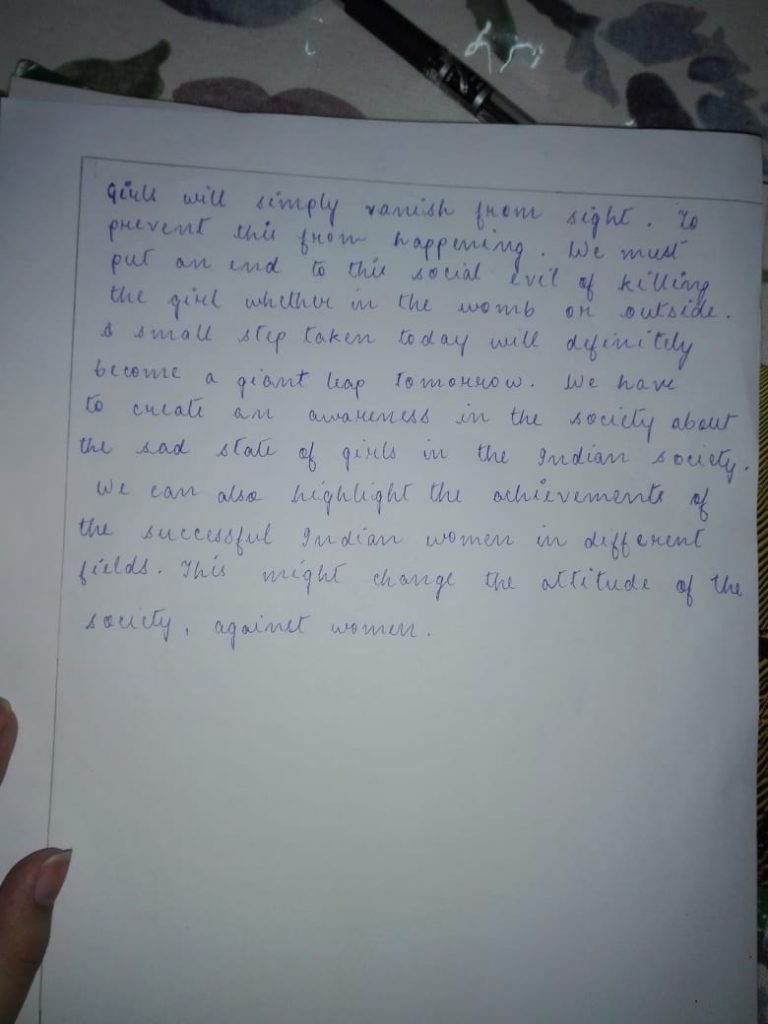 girls will simply vanish from sight. To
prevent this from happening. We must
put an end to this social evil of killing
the girl whether in the womb or outside.
A small step taken today will definitely
become a giant leap tomorrow. We have
to create an awareness in the society about
the sad state of girls in the Indian society.
We can also highlight the achievements of
the successful Indian women in different
fields. This might change the attitude of the
society, against women.